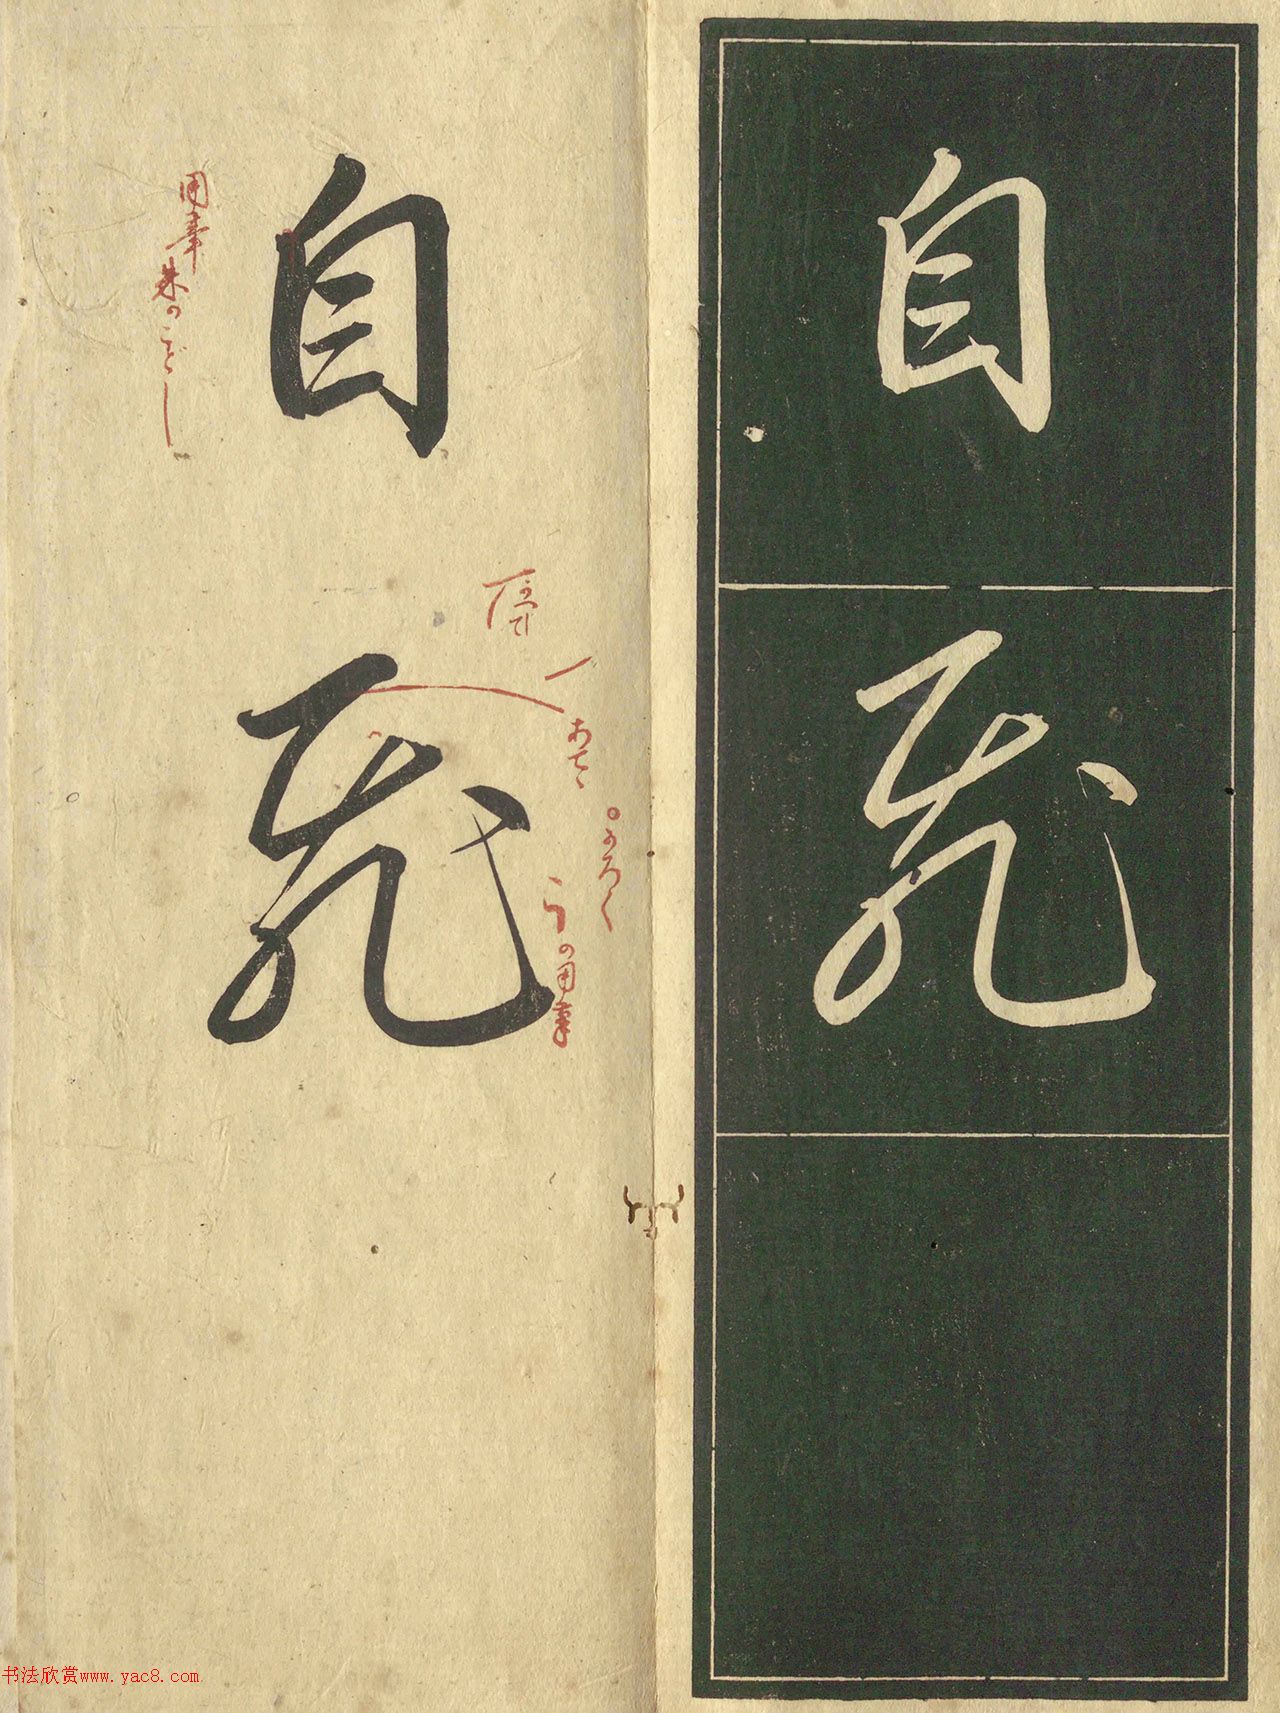 自飛
かろく
の用筆
あてゝ
自飛
用筆朱のごとし
书法欣赏www.yac8.com